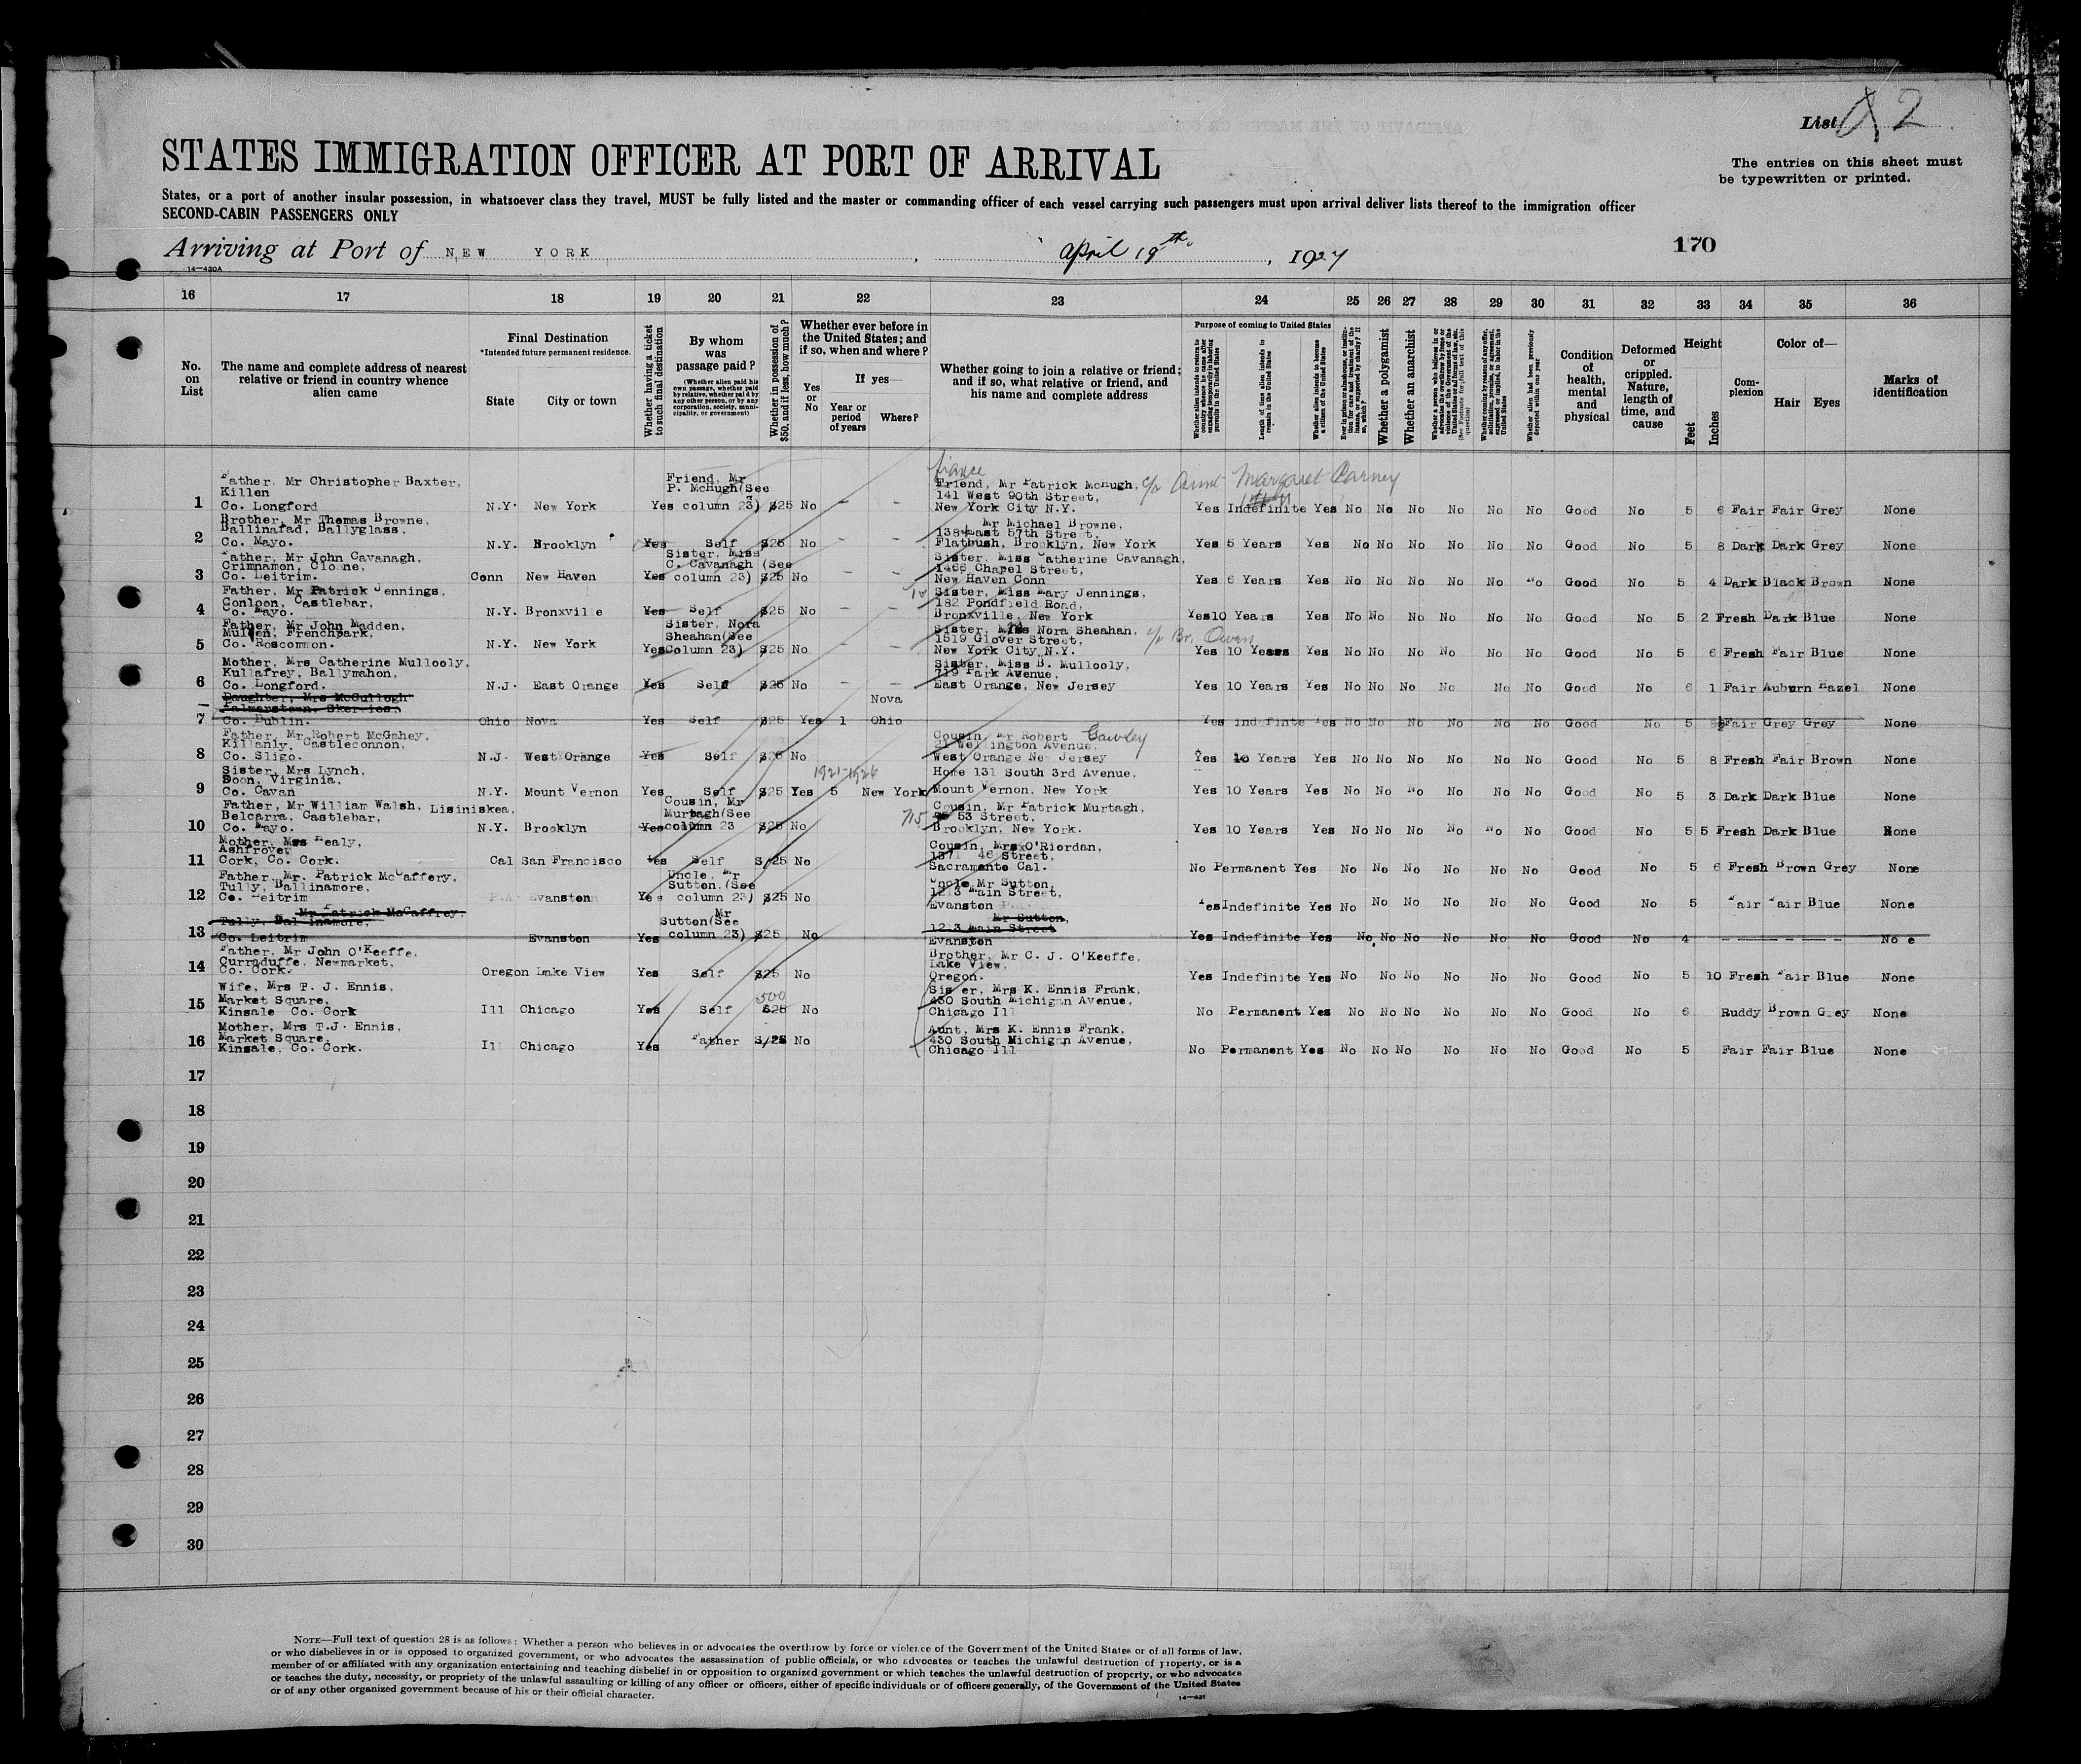 List 2
STATES IMMIGRATION OFFICER AT PORT OF ARRIVAL
The entries on this sheet must
be typewritten or printed.
States, or a port of another insular possession, in whatsoever class they travel, MUST be fully listed and the master or commanding officer of each vessel carrying such passengers must upon arrival deliver lists thereof to the immigration officer
SECOND-CABIN PASSENGERS ONLY
Arriving at Port of NEW YORK, April 19th, 1927
170
14—430A
16 17 18 19 20 21 22 23 24 25 26 27 28 29 30 31 32 33 34 35 36
No. on List
The name and complete address of nearest relative or friend in country whence alien came
Final Destination
*Intended future permanent residence.
State City or town
Whether having a ticket to such final destination
By whom was passage paid?
(Whether alien paid his own passage, whether paid by relative, whether paid by any other person, or by any corporation, society, municipality, or government)
Whether in possession of $50, and if less, how much?
Whether ever before in the United States; and if so, when and where?
Yes or No
If yes—
Year or period of years
Where?
Whether going to join a relative or friend; and if so, what relative or friend, and his name and complete address
Purpose of coming to United States
Length of time alien intends to remain in the United States
Whether alien intends to become a citizen of the United States
Whether a polygamist
Whether an anarchist
Whether alien had been previously deported within one year
Condition of health, mental and physical
Deformed or crippled. Nature, length of time, and cause
Height
Feet Inches
Complexion
Color of—
Hair Eyes
Marks of identification
1 Father, Mr Christopher Baxter, Killen Co. Longford N.Y. New York Yes Friend, Mr P. McHugh(See column 23) $25 No – – fiance Friend, Mr Patrick McHugh, 141 West 90th Street, New York City N.Y. c/o Aunt Margaret Carney Yes Indefinite Yes No No No No No No Good No 5 6 Fair Fair Grey None
2 Brother, Mr Thomas Browne, Ballinafad, Ballyglass, Co. Mayo. N.Y. Brooklyn Yes Self $25 No – – Mr Michael Browne, 138 East 57th Street, Flatbush, Brooklyn, New York Yes 5 Years Yes No No No No No No Good No 5 8 Dark Dark Grey None
3 Father, Mr John Cavanagh, Crimnamon, Cloone, Co. Leitrim. Conn New Haven Yes Sister, Miss C. Cavanagh (See column 23) $25 No – – Sister, Miss Catherine Cavanagh, 1466 Chapel Street, New Haven Conn Yes 6 Years Yes No No No No No No Good No 5 4 Dark Black Brown None
4 Father, Mr Patrick Jennings, Conloon, Castlebar, Co. Mayo. N.Y. Bronxville Yes Self $25 No – – Sister, Miss Mary Jennings, 182 Pondfield Road, Bronxville, New York Yes 10 Years Yes No No No No No No Good No 5 2 Fresh Dark Blue None
5 Father, Mr John Madden, Mullen, Frenchpark, Co. Roscommon. N.Y. New York Yes Sister, Nora Sheahan(See Column 23) $25 No – – Sister, Nora Sheahan, 1519 Glover Street, New York City N.Y. c/o Br. Owen Yes 10 Years Yes No No No No No No Good No 5 6 Fresh Fair Blue None
6 Mother, Mrs Catherine Mullooly, Kullafrey, Ballymahon, Co. Longford. N.J. East Orange Yes Self $25 No – – Sister, Miss B. Mullooly, 719 Park Avenue, East Orange, New Jersey Yes 10 Years Yes No No No No No No Good No 6 1 Fair Auburn Hazel None
7 Daughter, Mrs McCullogh Palmerstown, Skerries, Co. Dublin. Ohio Nova Yes Self $25 Yes 1 Nova Ohio Yes indefinte Yes No No No No No No Good No 5 Fair Grey Grey None
8 Father, Mr Robert McGahey, Killanly, Castleconnon, Co. Sligo. N.J. West Orange Yes Self $25 No Cousin, Mr Robert Gawley 21 Wellington Avenue, West Orange New Jersey Yes 10 Years Yes No No No No No No Good No 5 8 Fresh Fair Brown None
9 Sister, Mrs Lynch, Doon, Virginia, Co. Cavan N.Y. Mount Vernon Yes Self $25 Yes 5 1921-1926 New York Home 131 South 3rd Avenue, Mount Vernon, New York Yes 10 Years Yes No No No No No No Good No 5 3 Dark Dark Blue None
10 Father, Mr William Walsh, Lisiniskea, Belcarra, Castlebar, Co. Mayo. N.Y. Brooklyn Yes Cousin, Mr Murtagh(See column 23 $25 No 715 Cousin, Mr Patrick Murtagh, 53 Street, Brooklyn, New York. Yes 10 Years Yes No No No No No No Good No 5 5 Fresh Dark Blue None
11 Mother, Mrs Healy, Ashfrover Cork, Co. Cork. Cal San Francisco Yes Self $/25 No Cousin, Mrs O'Riordan, 1371 46 Street, Sacramento Cal. No Permanent Yes No No No No No No Good No 5 6 Fresh Brown Grey None
12 Father, Mr. Patrick McCaffery, Tully, Ballinamore, Co. Leitrim Evanston Yes Uncle, Mr Sutton, (See column 23) $25 No Uncle Mr Sutton, 1213 Main Street, Evanston Yes Indefinite Yes No No No No No No Good No 5 Fair Fair Blue None
13 Mr Patrick McCaffrey, Tully, Ballinamore, Co. Leitrim Evanston Yes Mr Sutton(See column 23) $25 No Mr Sutton, 1213 Main Street Evanston Yes Indefinite Yes No No No No No No Good No 4 – – – – – – No e
14 Father, Mr John O'Keeffe, Curraduffe, Newmarket, Co. Cork. Oregon Lake View Yes Self $25 No Brother, Mr C. J. O'Keeffe, Lake View, Oregon. Yes Indefinite Yes No No No No No No Good No 5 10 Fresh Fair Blue None
15 Wife, Mrs P. J. Ennis, Market Square, Kinsale Co. Cork Ill Chicago Yes Self 500 $25 No Sister, Mrs K. Ennis Frank, 430 South Michigan Avenue, Chicago Ill No Permanent Yes No No No No No No Good No 6 Ruddy Brown Grey None
16 Mother, Mrs T.J. Ennis, Market Square, Kinsale, Co. Cork. Ill Chicago Yes Father $/25 No Aunt, Mrs K. Ennis Frank, 430 South Michigan Avenue, Chicago Ill No Permanent Yes No No No No No No Good No 5 Fair Fair Blue None
17
18
19
20
21
22
23
24
25
26
27
28
29
30
NOTE—Full text of question 28 is as follows: Whether a person who believes in or advocates the overthrow by force or violence of the Government of the United States or of all forms of law,
or who disbelieves in or is opposed to organized government, or who advocates the assassination of public officials, or who advocates or teaches the unlawful destruction of property, or is a
member of or affiliated with any organization entertaining and teaching disbelief in or opposition to organized government or which teaches the unlawful destruction of property, or who advocates
or teaches the duty, necessity, or propriety of the unlawful assaulting or killing of any officer or officers, either of specific individuals or of officers generally, of the Government of the United States
or of any other organized government because of his or their official character.
14—431